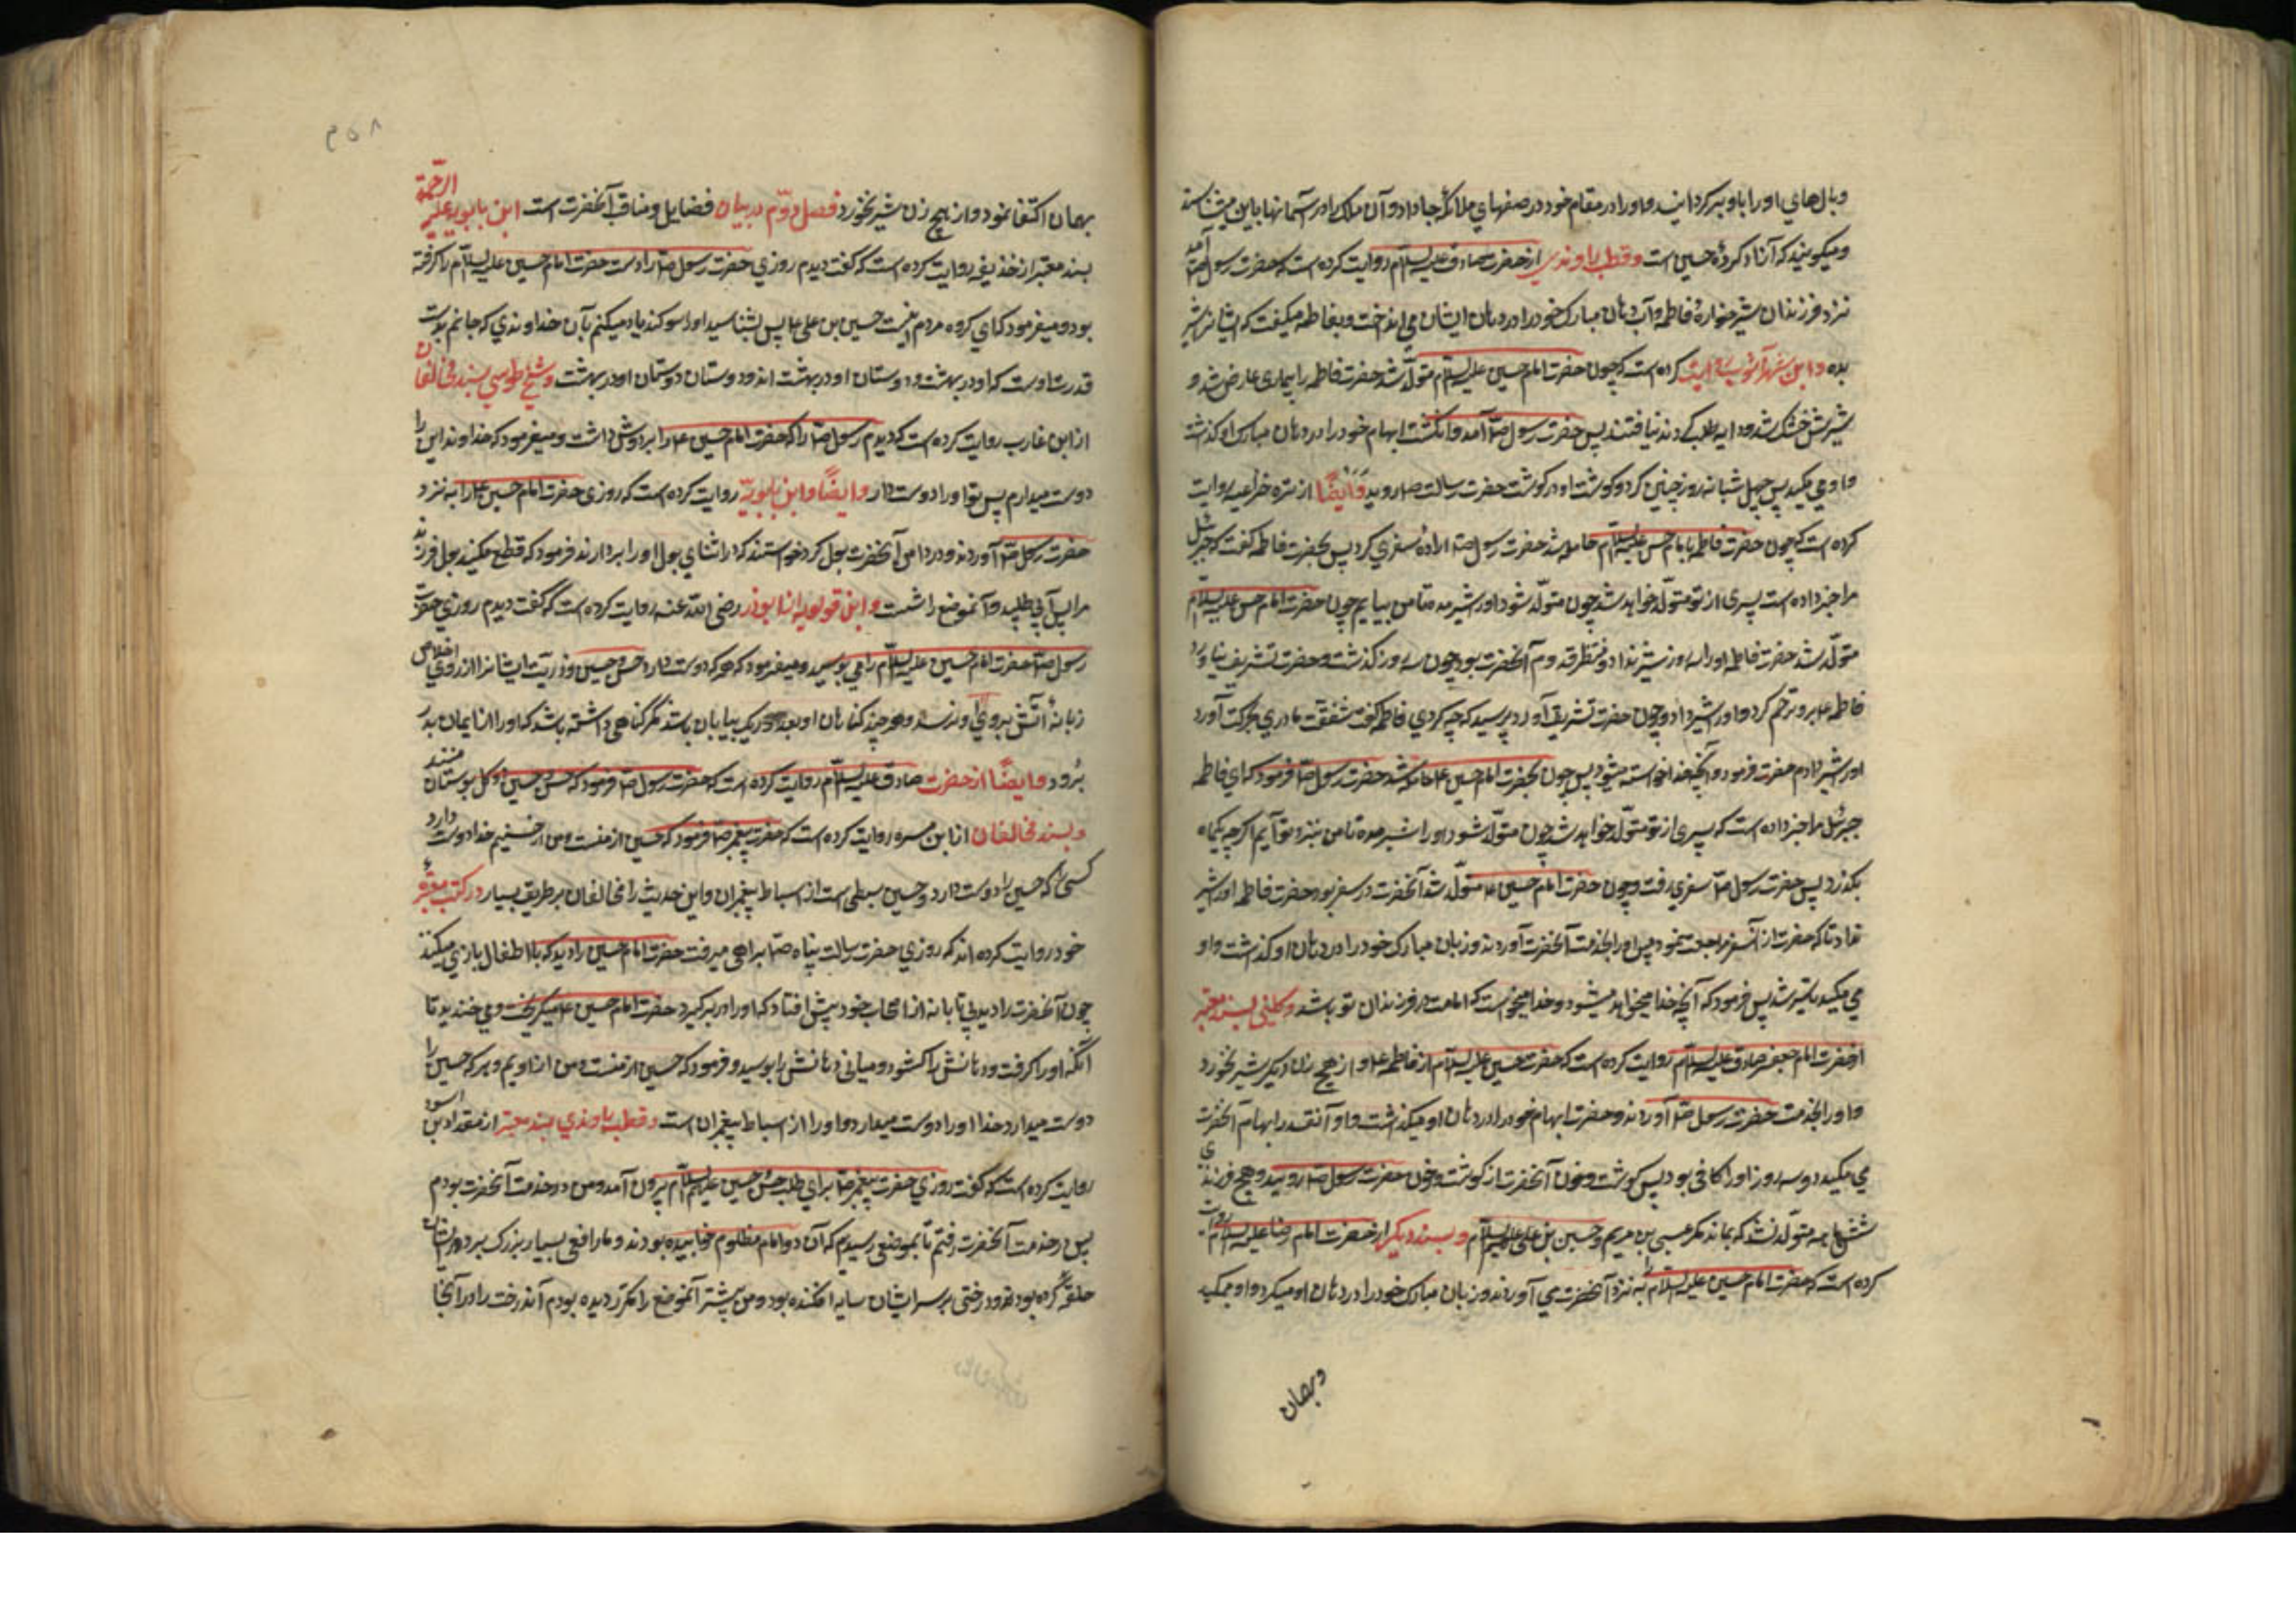 وبال‌هاي او را باو برگردانيد و او را در مقام خود در صفهاي ملائكه جا داد و آن ملك را در آسمانها باين ميشناسند
و ميگويند كه آزاد كردهٔ حسين است و قطب راوندي از حضرت صادق عليه السلام روايت كرده است كه حضرت رسول صلّا آمد
نزد فرزندان شير خوارهٔ فاطمه و آب دهان مبارك خود را در دهان ايشان مي انداخت و بفاطمه ميگفت كه ايشانرا شير
بده و ابن شهرآشوب روايت كرده است كه چون حضرت امام حسين عليه السلام متولّد شد حضرت فاطمه را بيماري عارض شد و
شيرش خشك شد و دايه طلب كردند نيافتند پس حضرت رسول صلّا آمد و انگشت ابهام خود را در دهان مبارك او گذاشت
و او مي مكيد پس چهل شبانه روز چنين كرد و گوشت او از گوشت حضرت رسالت صلا روييد و ايضًا از بره خزاعيه روايت
كرده است كه چون حضرت فاطمه بامام حسن عليه السلام حامله شد حضرت رسول صلا ارادهٔ سفري كرد پس بحضرت فاطمه گفت كه جبرئيل
مرا خبر داده است پسري از تو متولّد خواهد شد چون متولّد شود او را شير مده تا من بيايم چون حضرت امام حسن عليه السلام
متولّد شد حضرت فاطمه او را سه روز شير نداد و منتظر قدوم آنحضرت بود چون سه روز گذشت و حضرت تشريف نياورد
فاطمه ع برو ترحّم كرد و او را شير داد و چون حضرت تشريف آورد پرسيد كه چه كردي فاطمه گفت شفقت مادري بحركت آورد
او را شير دادم حضرت فرمود و آنچه خدا خواسته ميشود پس چون بحضرت امام حسين ع حامله شد حضرت رسول صلا فرمود كه اي فاطمه
جبرئيل مرا خبر داده است كه پسري از تو متولّد خواهد شد چون متولّد شود او را شير مده تا من بنزد تو آيم اگر چه يكماه
بگذرد پس حضرت رسول صلّا سفري رفت و چون حضرت امام حسين ع متولّد شد آنحضرت در سفر بود حضرت فاطمه او را شير
نداد تا كه حضرت از آنسفر مراجعت نمود پس او را بخدمت آنحضرت آوردند و زبان مبارك خود را در دهان او گذاشت و او
مي مكيد تا سير شد پس فرمود كه آنچه خدا ميخواهد ميشود و خدا ميخواست كه امامت در فرزندان تو باشد و كليني بسند معتبر
از حضرت امام جعفر صادق عليه السلام روايت كرده است كه حضرت حسين عليه السلام از فاطمه ع و از هيچ زن ديگر شير نخورد
و او را بخدمت حضرت رسول صلا آوردند و حضرت ابهام خود را در دهان او ميگذاشت و او آنقدر ابهام آنحضرت
مي مكيد دو سه روز او را كافي بود پس گوشت و خون آنحضرت از گوشت و خون حضرت رسول صلا روييد و هيچ فرزندي
ششماهه متولّد نشد كه بماند مگر عيسي بن مريم و حسين بن علي عليهم السلام و بسند ديگر از حضرت امام رضا عليه السلام روايت
كرده است كه حضرت امام حسين عليه السلام را به نزد آنحضرت مي آوردند و زبان مبارك خود را در دهان او ميكرد و او ميمكيد
و بهمان
۳۵۸
بهمان اكتفا نمود و از هيچ زن شير نخورد فصل دوّم در بيان فضايل و مناقب آنحضرت است ابن بابويه عليه الرحمة
بسند معتبر از حذيفه روايت كرده است كه گفت ديدم روزي حضرت رسول صلّا را دست حضرت امام حسين عليه السلام را گرفته
بود و ميفرمود كه اي گروه مردم اينست حسين بن علي ع پس بشناسيد او را سوگند ياد ميكنم بآن خداوندي كه جانم بدست
قدرت اوست كه او در بهشت و دوستان او در بهشت اند و دوستان دوستان او در بهشت و شيخ طوسي بسند مخالفان
از ابن عازب روايت كرده است كه ديدم رسول صلا را كه حضرت امام حسين ع را بر دوش داشت و ميفرمود كه خداوندا من اين را
دوست ميدارم پس تو او را دوست دار و ايضًا و ابن بابويه روايت كرده است كه روزي حضرت امام حسين ع را به نزد
حضرت رسول صلا آوردند و در دامن آنحضرت بول كرد خواستند كه در اثناي بول او را بردارند فرمود كه قطع مكنيد بول فرزند
مرا پس آبي طلبيد و آنموضع را شست و ابن قولويه از ابوذر رضي اللّه عنه روايت كرده است كه گفت ديدم روزي حضرت
رسول صلّا حضرت امام حسين عليه السلام را مي بوسيد و ميفرمود كه هر كه دوست دارد حسن و حسين و ذريّت ايشانرا از روي اخلاص
زبانهٔ آتش بروي او نرسد و هر چند گناهان او بعدد ريگ بيابان باشد مگر گناهي داشته باشد كه او را از ايمان بدر
برود و ايضًا از حضرت صادق عليه السلام روايت كرده است كه حضرت رسول صلا فرمود كه حسن و حسين دو گل بوستان منند
و بسند مخالفان از ابن مره روايت كرده است كه حضرت پيغمبر صلا فرمود كه حسين از منست و من از حسينم خدا دوست دارد
كسي را كه حسين را دوست دارد و حسين سبطي است از اسباط پيغمبران و اين حديث را مخالفان بر طريق بسيار در كتب معتبرهٔ
خود روايت كرده اند كه روزي حضرت رسالت پناه صلا براهي ميرفت حضرت امام حسين را ديد كه با اطفال بازي ميكند
چون آنحضرت را ديد بي تابانه از اصحاب خود پيش افتاد كه او را در برگيرد حضرت امام حسين ع ميگريخت و مي خنديد تا
آنكه او را گرفت و دهانش را گشود و مياني دهانش را بوسيد و فرمود كه حسين از منست و من از اويم و هر كه حسين را
دوست ميدارد خدا او را دوست ميدارد و او را از اسباط پيغمبران است و قطب راوندي بسند معتبر از مقداد بن اسود
روايت كرده است كه گفت روزي حضرت پيغمبر صلا براي طلب حسن و حسين عليهم السلام بيرون آمد و من در خدمت آنحضرت بودم
پس در خدمت آنحضرت رفتم تا بموضعي رسيدم كه آن دو امام مظلوم خوابيده بودند و مار افعي بسيار بزرگ بر دور ايشان
حلقه كرده بود و درختي بر سر ايشان سايه افكنده بود و من پيشتر آنموضع را مكرّر ديده بودم آندرخت را در آنجا